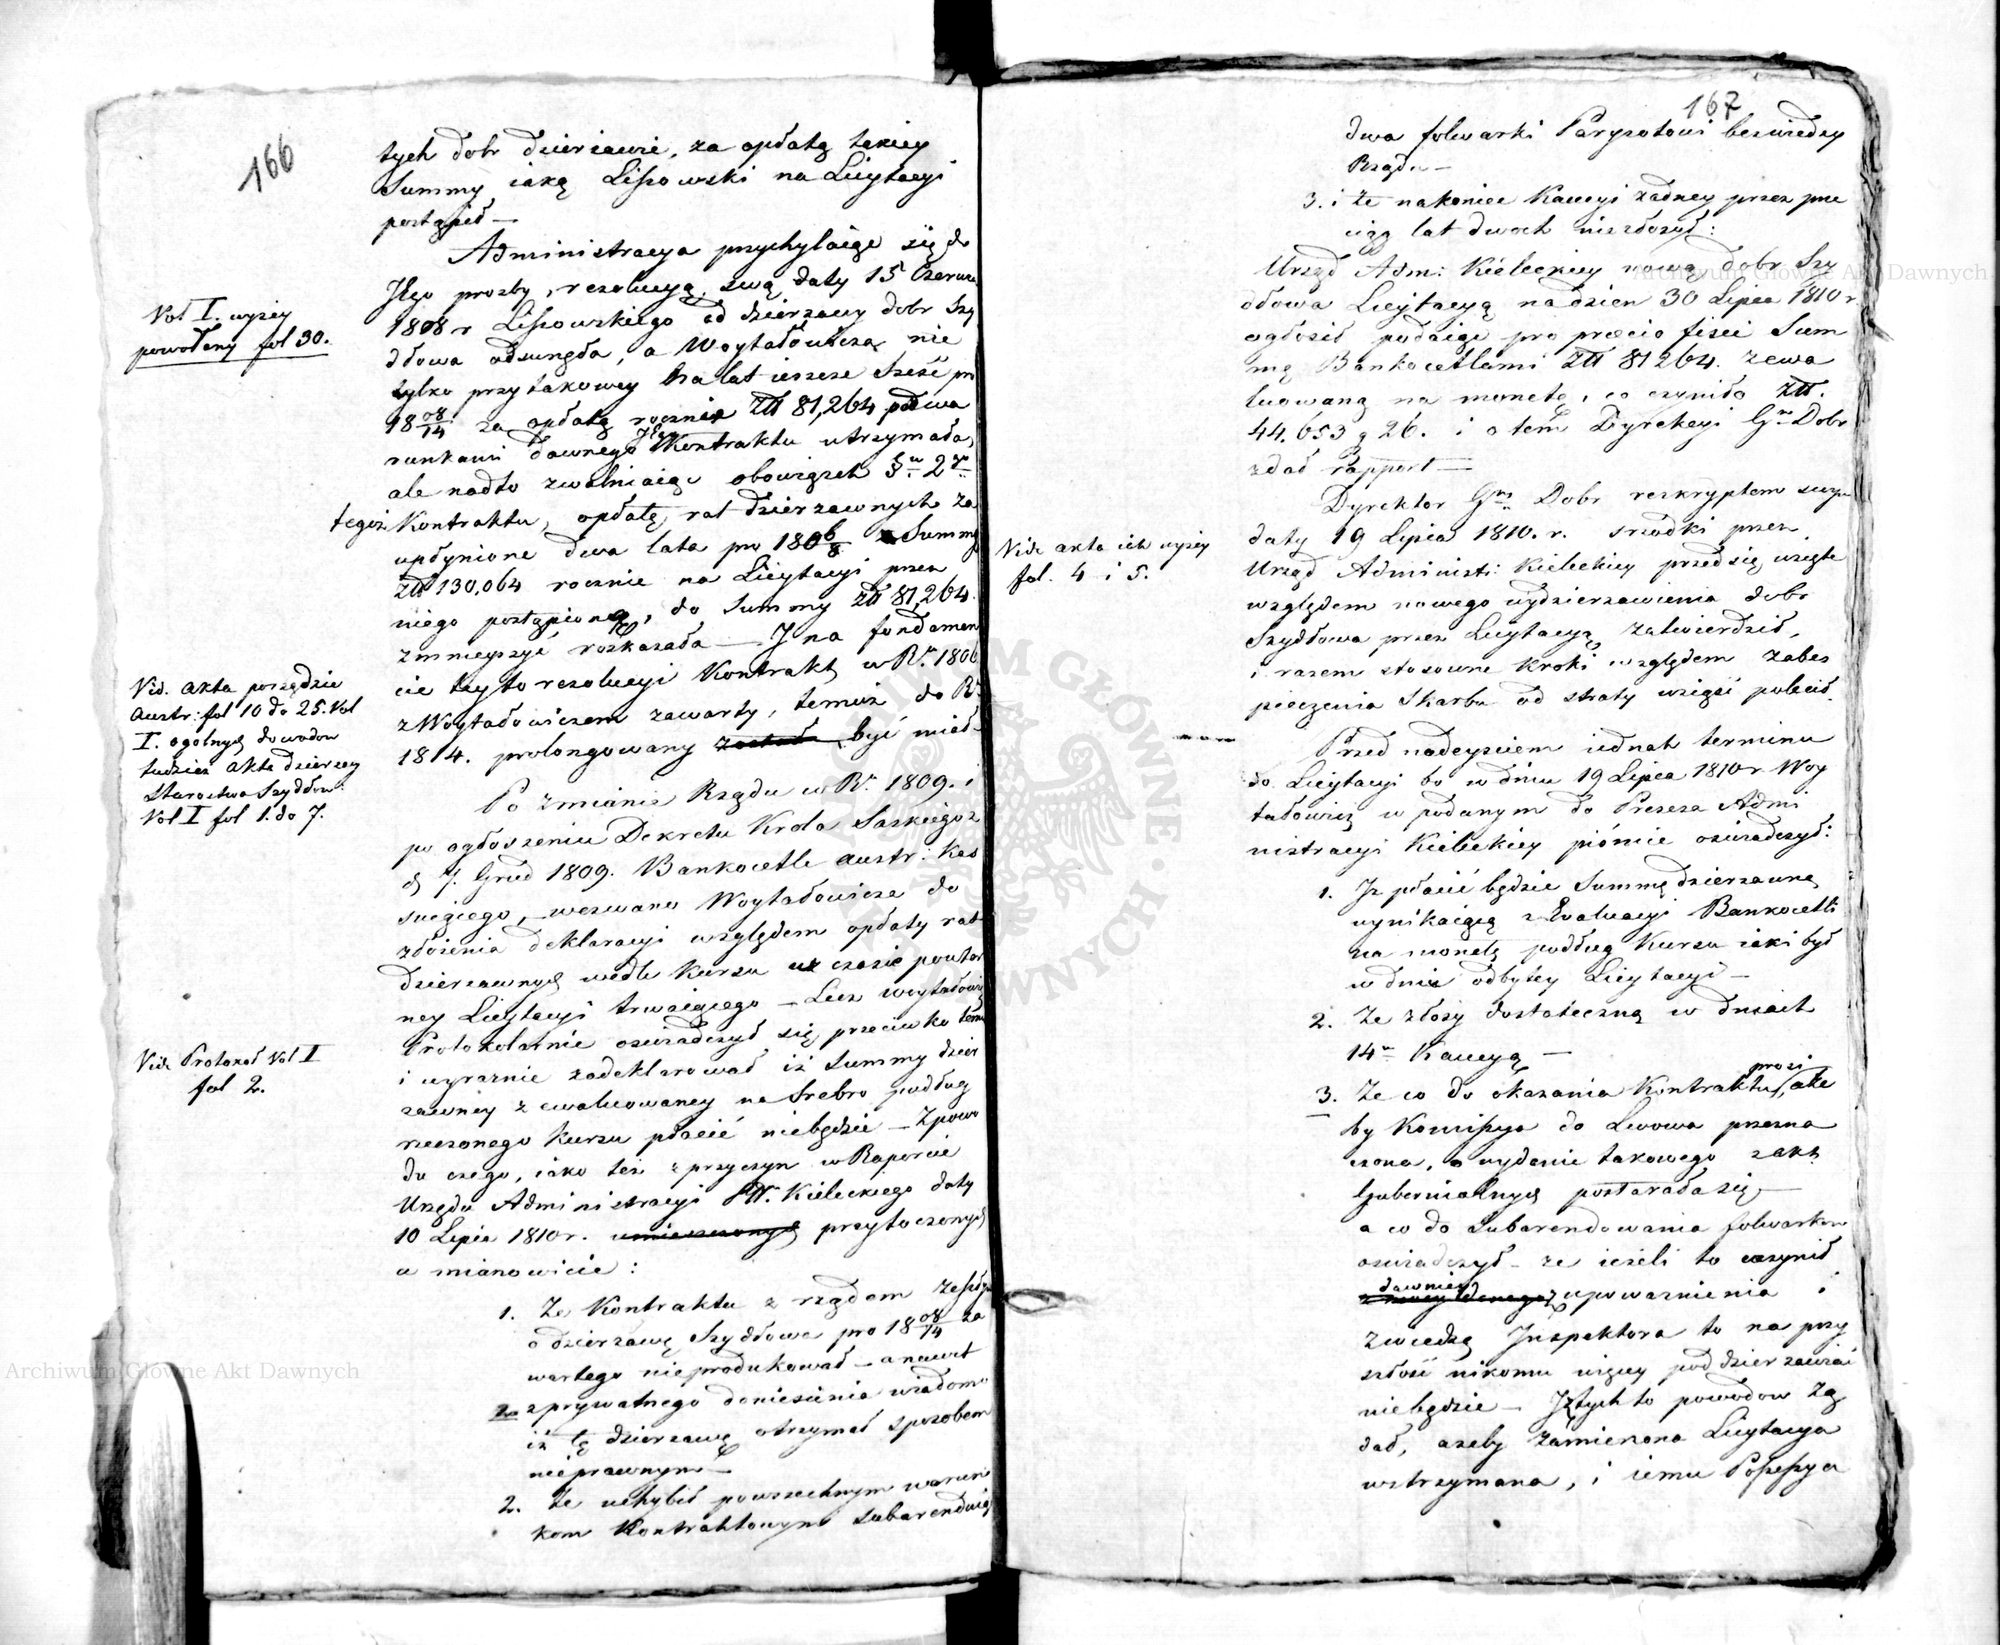 166
tych dobr dzierżawie, za opłatą takiey
Summy iaką Lissowski na Licytacyi
postąpił —
Administracya przychylaiąc się do
Jego prozby, rezolucyą swą daty 15 Czerwca
1808 r Lissowskiego od dzierzawy dobr Szy
dłowa odsunęła, a Woytałowicza nie
tylko przy takowey na lat ieszcze sześć pro
18 08/14 za opłatą roczną Złł 81,264 pod wa
runkami dawnego Jego Kontraktu utrzymała,
ale nadto zwalniaiąc obowiązek §u 2go
tegoż Kontraktu, opłatę rat dzierzawnych za
upłynione dwa lata pro 180 6/8 z Summy
Złł 130,064 rocznie na Licytacyi przez
niego postąpioney, do Summy Złł 81,264.
zmnieyszyć rozkazała — I na fundamen
cie tey to rezolucyi Kontrakt w Rku 1806
z Woytałowiczem zawarty, temuż do Rku
1814. prolongowany został być miał.
Po zmianie Rządu w Rku 1809. i
po ogłoszeniu Dekretu Krola Saskiego z
d 7. Grud 1809. Bankocetle austr: Kas
suiącego, wezwano Woytałowicza do
złożenia deklaracyi względem opłaty rat
dzierzawnych wedle Kursu w czasie powtor
ney Licytacyi trwaiącego — Lecz Woytałowicz
Protokolarnie oswiadczył się przeciwko temu
i wyraznie zadeklarował iż Summy dzier
zawney zewaluowaney na Srebro podług
rzeczonego Kursu płacić niebędzie — Z powo
du czego, iako też z przyczyn w Raporcie
Urzędu Administracyi Ptu Kieleckiego daty
10 Lipca 1810 r. umieszczonych przytoczonych
a mianowicie:
1. Że Kontraktu z rządem zeszłym
o dzierzawę Szydłowa pro 18 08/14 za
wartego nieprodukował — a nawet
z prywatnego doniesienia wiadomo
iż tę dzierzawę otrzymał sposobem
nieprawnym —
2. Że uchybił powszechnym warun
kom Kontraktowym Subarenduiąc
Vol I. wyżey
powołany fol 30.
Vid. akta porządzie
Austr: fol 10 do 25. Vol
I. ogolnych dowodow
tudzież akta dzierzawy
Starostwa Szydłow:
Vol I fol 1. do 7.
Vide Protokoł Vol I
fol 2.
167
dwa folwarki Paryzotowi bez wiedzy
Rządu —
3. i że nakoniec Kaucyi żadney przez prze
ciąg lat dwoch niezłożył:
Urząd Adm: Kieleckiey nową dobr Szy
dłowa Licytacyą na dzien 30 Lipca 1810 r
ogłosił podaiąc pro praecio fisci Sum
mę Bankocetlami Złł 81264. zewa
luowaną na monetę, co czyniło Złł.
44,653 g 26. i o tem Dyrekcyi Gney Dobr
zdał rapport —
Dyrektor Gny Dobr reskryptem swym
daty 19 Lipca 1810. r. srzodki przez
Urząd Administ: Kieleckiey przedsię wzięte
względem nowego wydzierzawienia dobr
Szydłowa przez Licytacyą zatwierdził,
i razem stosowne kroki względem zabez
pieczenia Skarbu od straty wziąść polecił.
Przed nadeysciem iednak terminu
do Licytacyi bo w dniu 19 Lipca 1810 r Woy
tałowicz w podanym do Prezesa Admi
nistracyi Kieleckiey pismie oswiadczył:
1. Iż płacić będzie Summę dzierzawną
wynikaiącą z Ewaluacyi Bankocetli
na monetę podług Kursu iaki był
w dniu odbytey Licytacyi —
2. Że złoży dostateczną w dniach
14tu Kaucyą —
3. Że co do okazania Kontraktu, prosi ażeby
by Komissya do Lwowa przezna
czona, o wydanie takowego z akt
Gubernialnych postarała się —
a co do Subarendowania folwarkow
oswiadczył — że ieżeli to uczynił
dawniey z upowaznienia i
z wiedzą Inspektora to na przy
szłość nikomu więcey poddzierzawiać
niebędzie — Z tych to powodow żą
dał, azeby zamierzona Licytacya
wstrzymana, i iemu Possessya
Vide akta ich wyżey
fol. 4 i 5.
Archiwum Główne Akt Dawnych
Archiwum Główne Akt Dawnych
ARCHIWUM GŁÓWNE AKT DAWNYCH